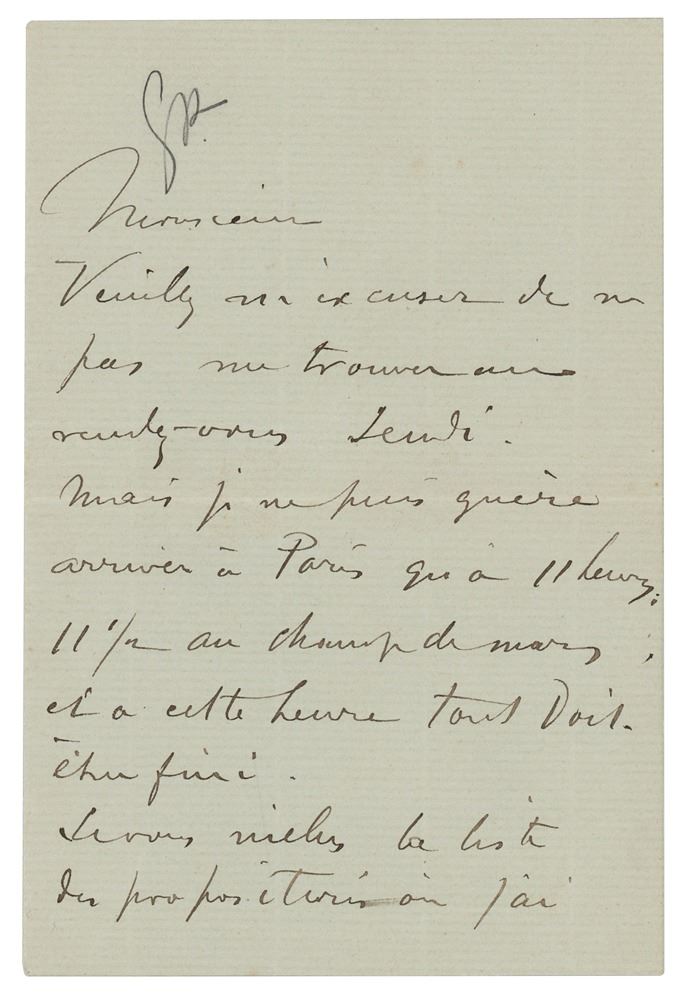 Monsieur
Veuillez m'excuser de ne
pas me trouver au
rendez-vous Jeudi.
Mais je ne puis guère
arriver à Paris qu'à 11 heures;
11 1/2 au champ de mars,
et a cette heure tout Doit
être fini.
Je vous la liste
des propositions où j'ai